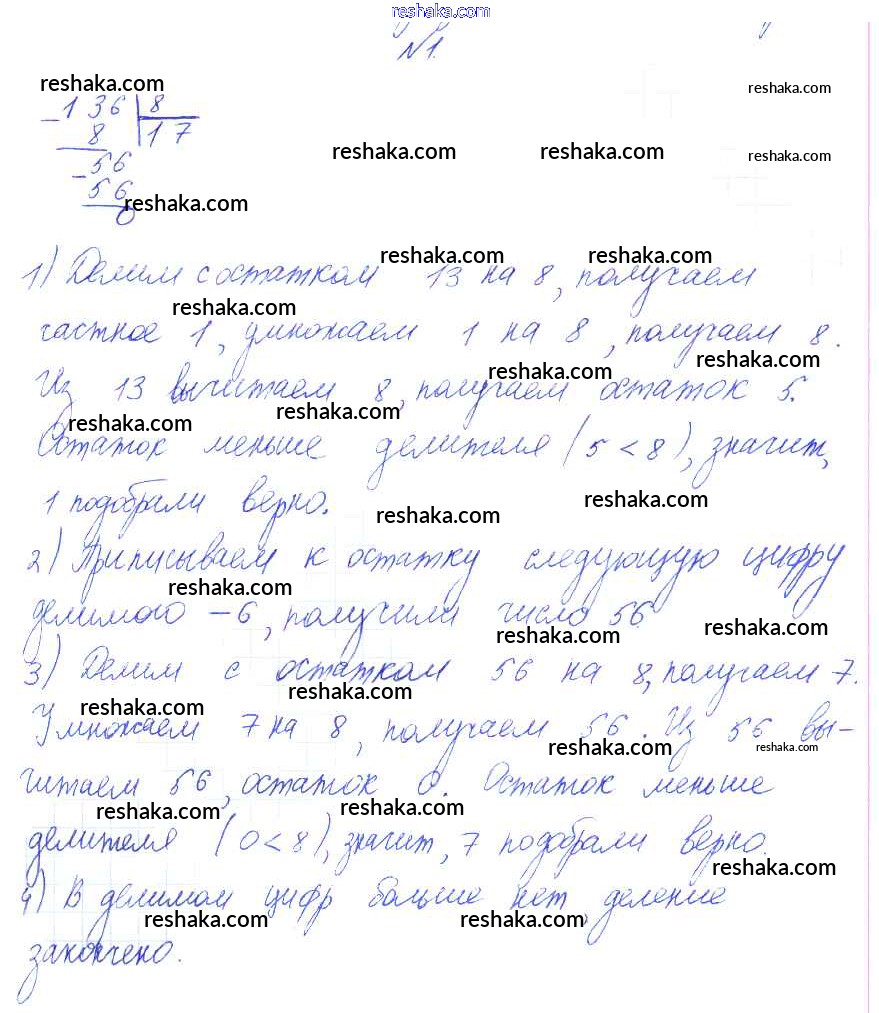 reshaka.com
№1.
reshaka.com
reshaka.com
- 136 | 8
8 | 17
reshaka.com reshaka.com reshaka.com
- 56
56
reshaka.com
0
reshaka.com reshaka.com
1) Делим с остатком 13 на 8, получаем
reshaka.com
частное 1, умножаем 1 на 8, получаем 8.
reshaka.com
reshaka.com
Из 13 вычитаем 8, получаем остаток 5.
reshaka.com reshaka.com
Остаток меньше делителя (5 < 8), значит,
1 подобрали верно.
reshaka.com reshaka.com
2) Приписываем к остатку следующую цифру
reshaka.com
делимого - 6, получили число 56.
reshaka.com reshaka.com
3) Делим с остатком 56 на 8, получаем 7.
reshaka.com reshaka.com
Умножаем 7 на 8, получаем 56. Из 56 вы-
reshaka.com reshaka.com
читаем 56, остаток 0. Остаток меньше
reshaka.com reshaka.com
делителя (0 < 8), значит, 7 подобрали верно.
reshaka.com
4) В делимом цифр больше нет, деление
reshaka.com reshaka.com
закончено.